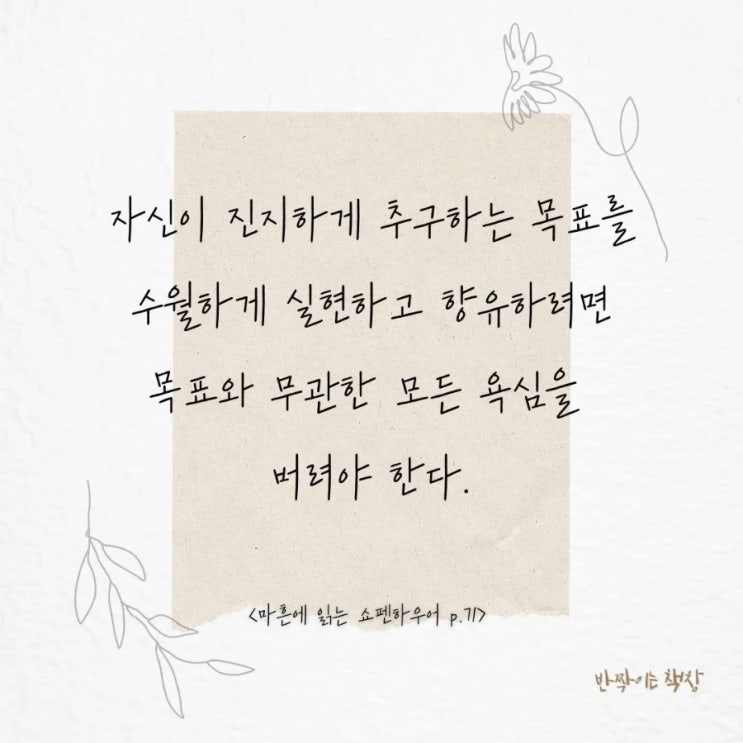 자신이 진지하게 추구하는 목표를
수월하게 실현하고 향유하려면
목표와 무관한 모든 욕심을
버려야 한다.
<마흔에 읽는 쇼펜하우어 p.71>
반짝이는 책장